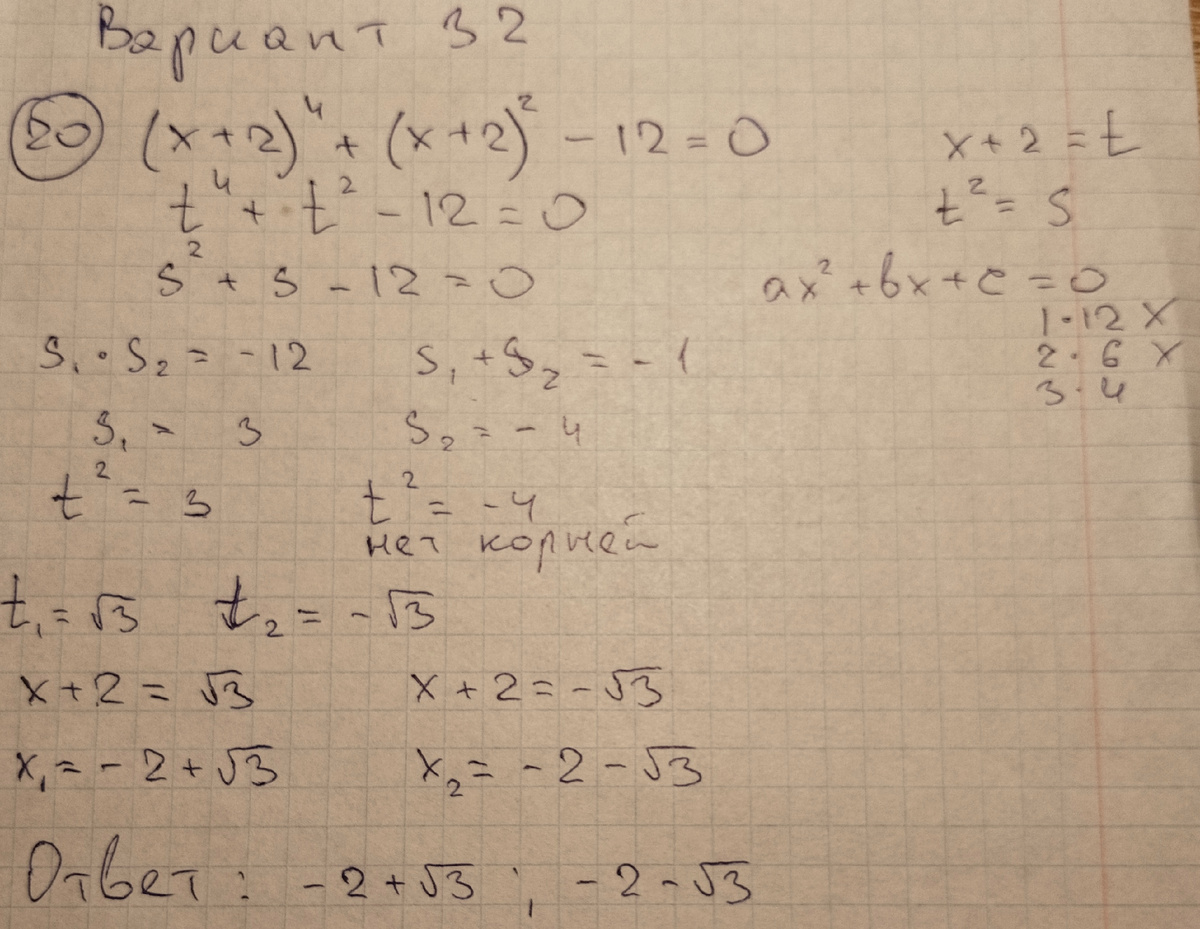 Вариант 32
20 (x+2)⁴ + (x+2)² - 12 = 0 x + 2 = t
t⁴ + t² - 12 = 0 t² = s
s² + s - 12 = 0 ax² + bx + c = 0
1·12 x
s₁ · s₂ = -12 s₁ + s₂ = -1 2·6 x
3·4
s₁ = 3 s₂ = -4
t² = 3 t² = -4
нет корней
t₁ = √3 t₂ = -√3
x + 2 = √3 x + 2 = -√3
x₁ = -2 + √3 x₂ = -2 - √3
Ответ: -2 + √3 ; -2 - √3